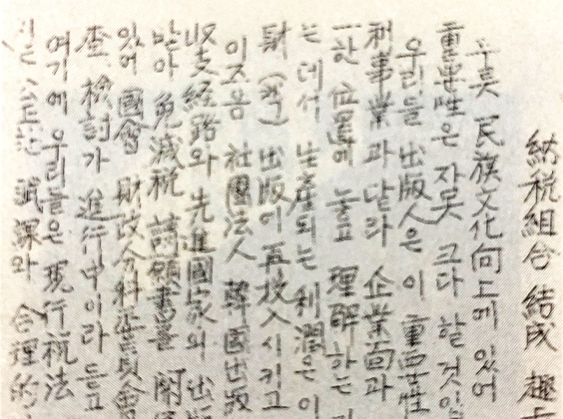 納税組合 結成 趣
民族文化向上에 있어
重要性은 자못 크다 할 것이
우리들 出版人은 이 重要性
利事業과 달라 企業面과
한 位置에 놓고 理解하는
는 데서 生産되는 利潤은 이
財(책) 出版에 再投入시키고
이즈음 社團法人 韓國出版
收支経路와 先進國家의 出版
받아 免減税 請願書를
있어 國會 財政分科委員會
査 檢討가 進行中이라 듣고
여기에 우리들은 現行税法
公正한 賦課와 合理的